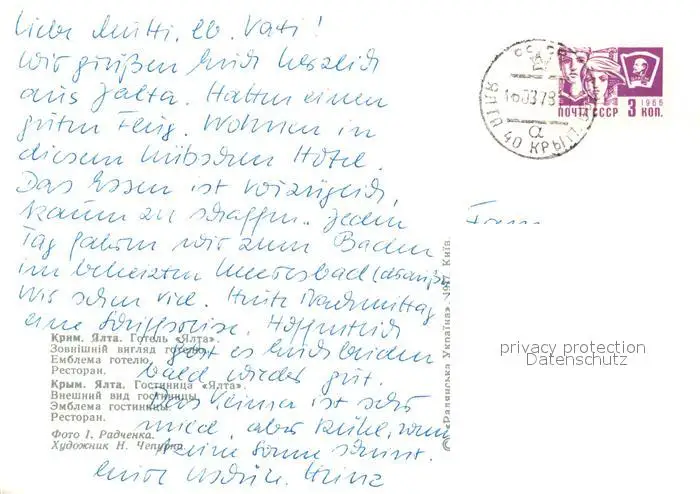 Liebe Mutti, lb. Vati!
Wir grüßen Euch herzlich
aus Jalta. Hatten einen
guten Flug. Wohnen in
diesem hübschen Hotel.
Das Essen ist vorzüglich,
kaum zu schaffen. Jeden
Tag gehen wir zum Baden
im beheizten Meeresbad (draußen
Wir sehen viel. Heute Nachmittag
eine Schiffsreise. Hoffentlich
geht es Euch beiden
bald wieder gut.
Das Klima ist sehr
mild, aber kühl, wenn
keine Sonne scheint.
Heinz
СССР
16.03.78
ЯЛТА 40 КРЫМ.
а
ПОЧТА СССР
1966
3 КОП.
Крим. Ялта. Готель «Ялта».
Зовнішній вигляд готелю.
Емблема готелю.
Ресторан.
Крым. Ялта. Гостиница «Ялта».
Внешний вид гостиницы.
Эмблема гостиницы.
Ресторан.
Фото І. Радченка.
Художник Н. Чепурна.
«Радянська Україна». Київ.
privacy protection
Datenschutz